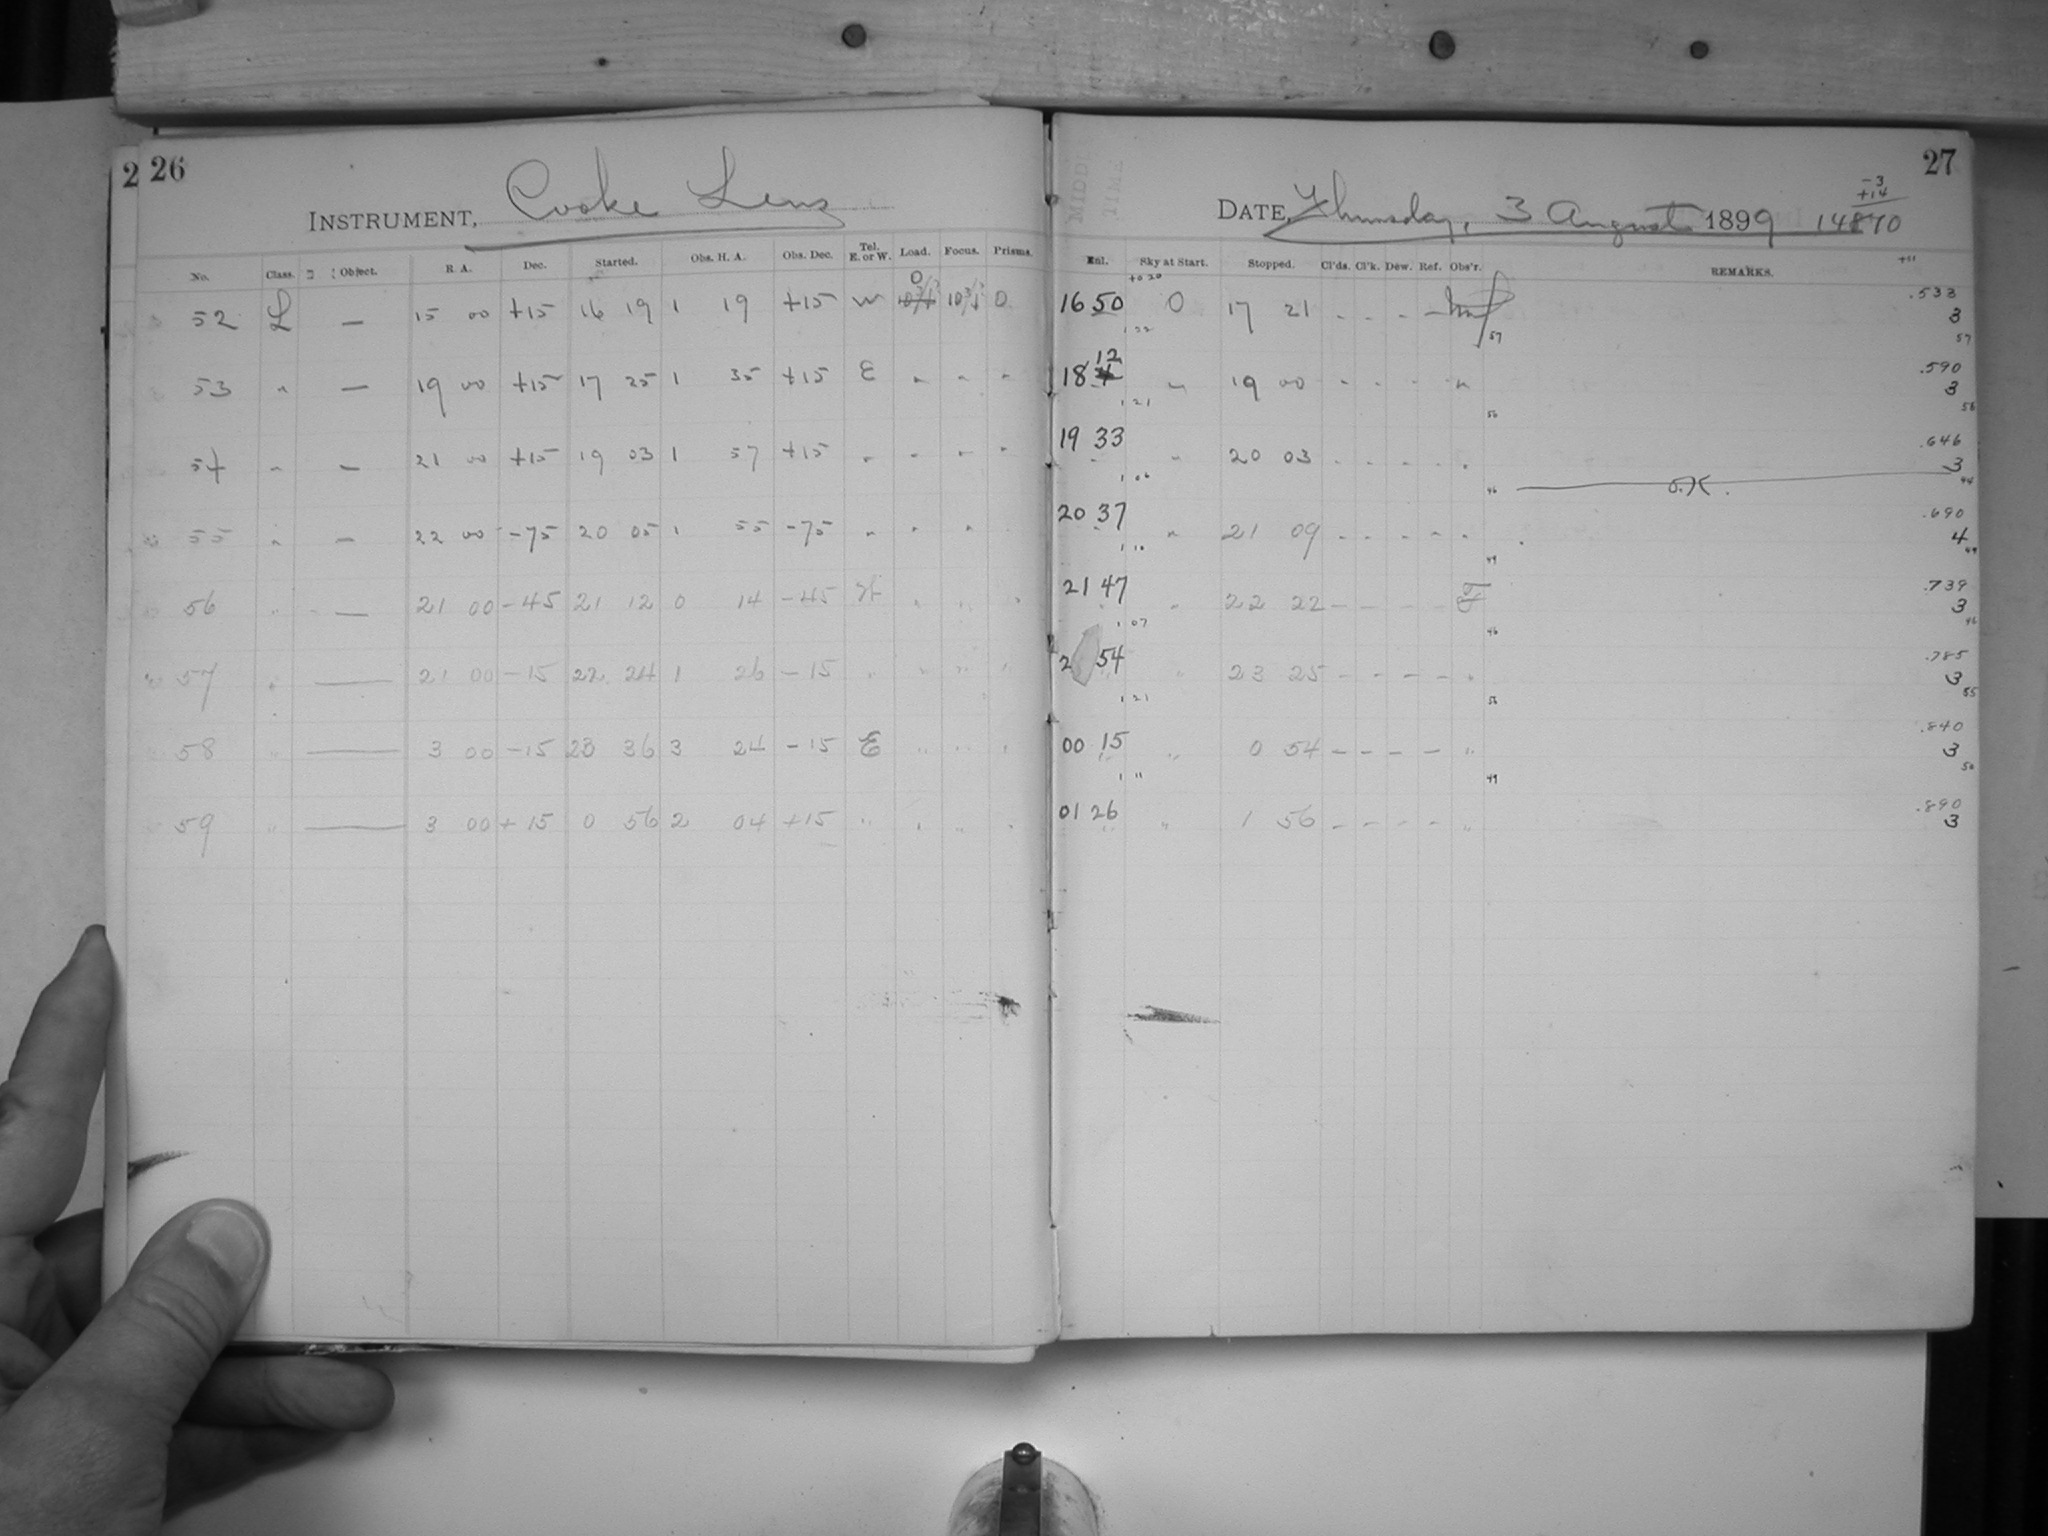 2 26
INSTRUMENT, Cooke Lens
No. Class. Object. R. A. Dec. Started. Obs. H. A. Obs. Dec. Tel. E. or W. Load. Focus. Prisms.
0
52 L — 15 00 +15 16 19 1 19 +15 W 10 3/1 0
53 " — 19 00 +15 17 25 1 35 +15 E " " "
54 " — 21 00 +15 19 03 1 57 +15 " " " "
55 " — 22 00 -75 20 05 1 55 -75 " " "
56 " — 21 00 -45 21 12 0 14 -45 W " " "
57 " — 21 00 -15 22 24 1 26 -15 " " " "
58 " — 3 00 -15 23 36 3 24 -15 E " " "
59 " — 3 00 +15 0 56 2 04 +15 " " " "
27
-3
+14
DATE, Thursday, 3 August 1899 14870
Sky at Start. Stopped. Cl'ds. Cl'k. Dew. Ref. Obs'r. REMARKS. +11
+0 20
16 50 0 17 21 - - - - .533
3
1 22 57 57
18 12 " 19 00 - - - - " .590
3
1 21 56 56
19 33 " 20 03 - - - - " .646
3
1 06 46 O.K. 44
20 37 " 21 09 - - - - " .690
4
1 10 49 49
21 47 " 22 22 - - - - .739
3
1 07 46 46
2 54 " 23 25 - - - - " .785
3
1 21 56 55
00 15 " 0 54 - - - - " .840
3
1 11 49 50
01 26 " 1 56 - - - - " .890
3